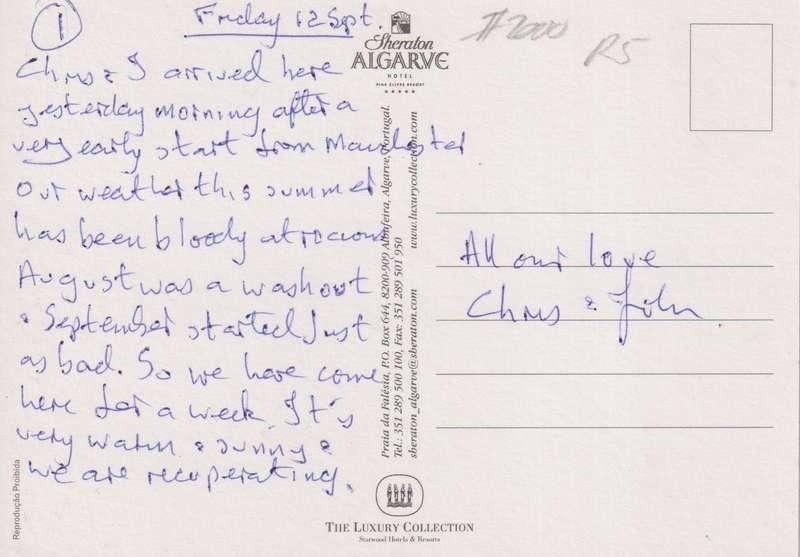 1
Friday 12 Sept.
Chris & I arrived here
yesterday morning after a
very early start from Manchester
Our weather this summer
has been bloody atrocious
August was a washout
& September started Just
as bad. So we have come
here for a week. It's
very warm & sunny &
we are recuperating.
Sheraton
ALGARVE
HOTEL
PINE CLIFFS RESORT
#2000
R5
Praia da Falésia, P.O. Box 644, 8200-909 Albufeira, Algarve, Portugal.
Tel.: 351 289 500 100, Fax: 351 289 501 950
sheraton_algarve@sheraton.com www.luxurycollection.com
All our love
Chris & John.
THE LUXURY COLLECTION
Starwood Hotels & Resorts
Reprodução Proibida